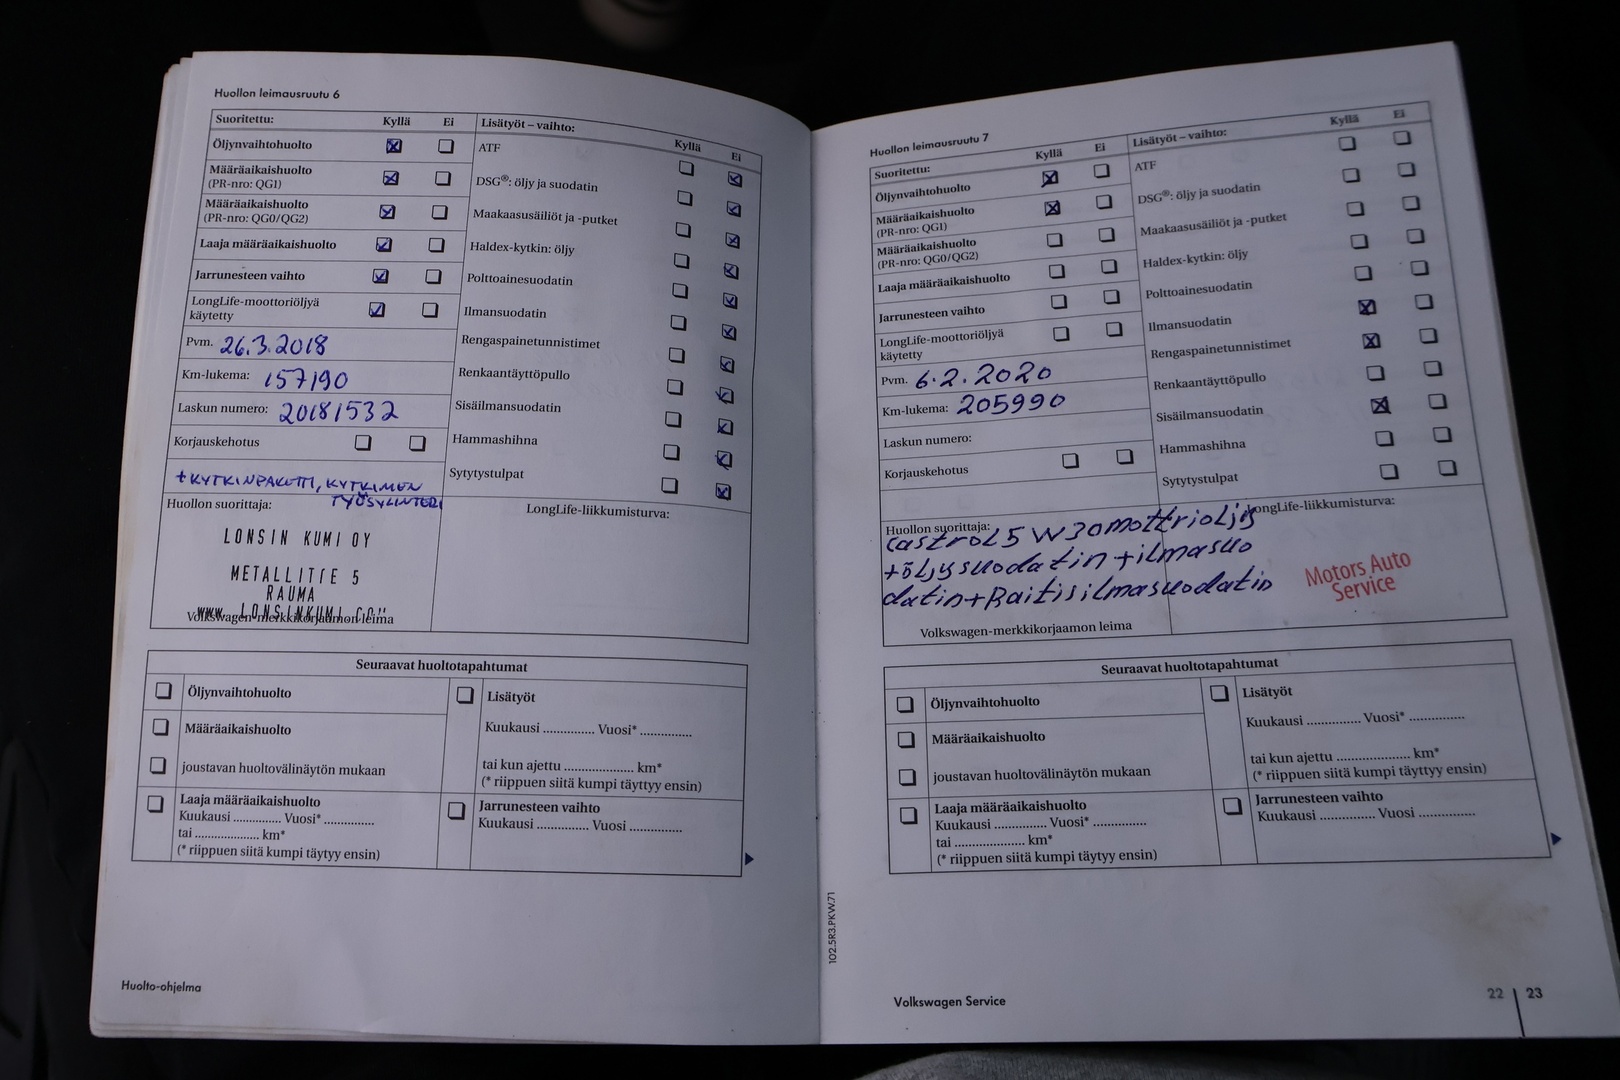 Huollon leimausruutu 6
Suoritettu: Kyllä Ei
Öljynvaihtohuolto
Määräaikaishuolto
(PR-nro: QG1)
Määräaikaishuolto
(PR-nro: QG0/QG2)
Laaja määräaikaishuolto
Jarrunesteen vaihto
LongLife-moottoriöljyä
käytetty
Pvm. 26.3.2018
Km-lukema: 157190
Laskun numero: 20181532
Korjauskehotus
+ KYTKINPAKETTI, KYTKIMEN
TYÖSYLINTERI
Huollon suorittaja:
LONSIN KUMI OY
METALLITIE 5
RAUMA
WWW. LONSINKUMI.COM
Volkswagen-merkkikorjaamon leima
Lisätyöt – vaihto:
Kyllä Ei
ATF
DSG®: öljy ja suodatin
Maakaasusäiliöt ja -putket
Haldex-kytkin: öljy
Polttoainesuodatin
Ilmansuodatin
Rengaspainetunnistimet
Renkaantäyttöpullo
Sisäilmansuodatin
Hammashihna
Sytytystulpat
LongLife-liikkumisturva:
Seuraavat huoltotapahtumat
Öljynvaihtohuolto
Määräaikaishuolto
joustavan huoltovälinäytön mukaan
Laaja määräaikaishuolto
Kuukausi .............. Vuosi* ..............
tai ..................... km*
(* riippuen siitä kumpi täytyy ensin)
Lisätyöt
Kuukausi .............. Vuosi* ..............
tai kun ajettu ..................... km*
(* riippuen siitä kumpi täyttyy ensin)
Jarrunesteen vaihto
Kuukausi .............. Vuosi ..............
Huolto-ohjelma
Huollon leimausruutu 7
Suoritettu: Kyllä Ei
Öljynvaihtohuolto
Määräaikaishuolto
(PR-nro: QG1)
Määräaikaishuolto
(PR-nro: QG0/QG2)
Laaja määräaikaishuolto
Jarrunesteen vaihto
LongLife-moottoriöljyä
käytetty
Pvm. 6.2.2020
Km-lukema: 205990
Laskun numero:
Korjauskehotus
Huollon suorittaja:
castrol 5 W30 mottrioljy
+öljysuodatin +ilmasuo
datin+Raitisilmasuodatin
Volkswagen-merkkikorjaamon leima
Lisätyöt – vaihto:
Kyllä Ei
ATF
DSG®: öljy ja suodatin
Maakaasusäiliöt ja -putket
Haldex-kytkin: öljy
Polttoainesuodatin
Ilmansuodatin
Rengaspainetunnistimet
Renkaantäyttöpullo
Sisäilmansuodatin
Hammashihna
Sytytystulpat
LongLife-liikkumisturva:
Motors Auto
Service
Seuraavat huoltotapahtumat
Öljynvaihtohuolto
Määräaikaishuolto
joustavan huoltovälinäytön mukaan
Laaja määräaikaishuolto
Kuukausi .............. Vuosi* ..............
tai ..................... km*
(* riippuen siitä kumpi täytyy ensin)
Lisätyöt
Kuukausi .............. Vuosi* ..............
tai kun ajettu ..................... km*
(* riippuen siitä kumpi täyttyy ensin)
Jarrunesteen vaihto
Kuukausi .............. Vuosi ..............
102.5R3.PKW.71
Volkswagen Service
22 23